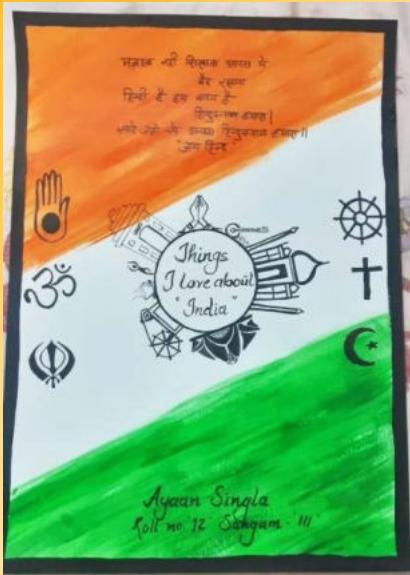 मज़हब नहीं सिखाता आपस में
बैर रखना
हिन्दी हैं हम वतन है
हिन्दुस्तान हमारा।
सारे जहाँ से अच्छा हिन्दुस्तान हमारा॥
"जय हिन्द"
Things
I Love about
"India"
Ayaan Singla
Roll no. 12 Sangam - 'III'